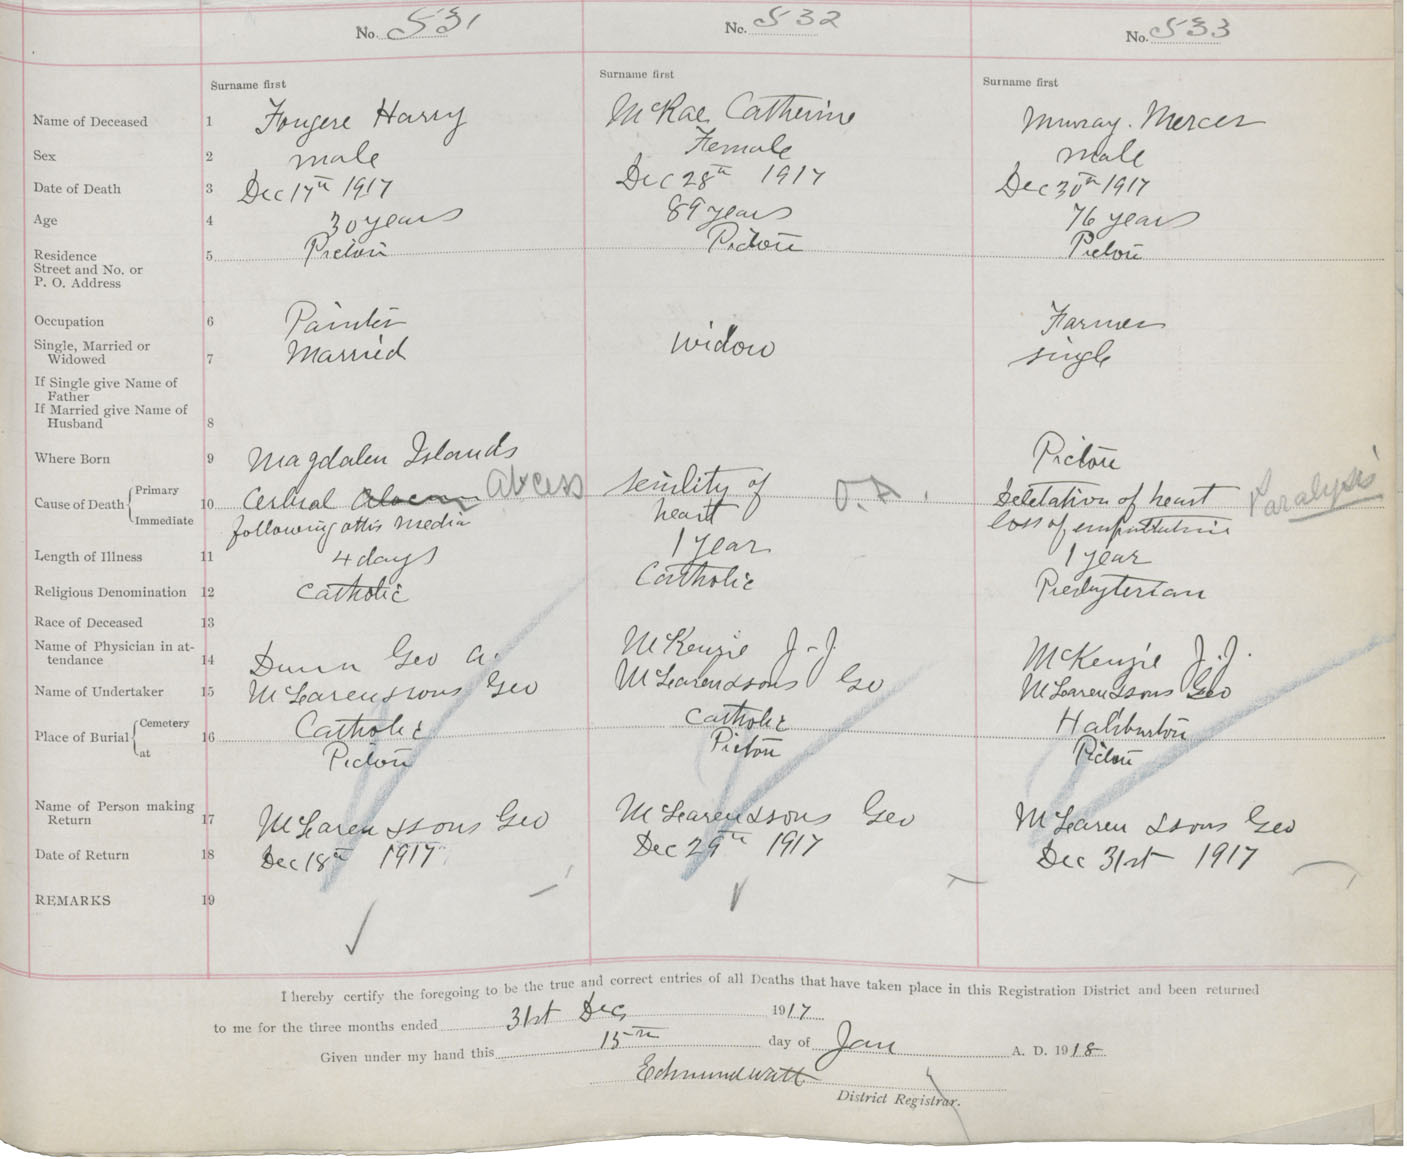 No. 531 No. 532 No. 533
Surname first Surname first Surname first
Name of Deceased 1 Fougere Harry McRae Catherine Murray. Mercer
Sex 2 male Female male
Date of Death 3 Dec 17th 1917 Dec 28th 1917 Dec 30th 1917
Age 4 30 years 89 years 76 years
Residence 5 Pictou Pictou Pictou
Street and No. or
P. O. Address
Occupation 6 Painter Farmer
Single, Married or
Widowed 7 Married widow single
If Single give Name of
Father
If Married give Name of
Husband 8
Where Born 9 Magdalen Islands Pictou
Cause of Death { Primary 10 Cerbral abcess senility of O.A. of heart Paralysis
Immediate following otitis media heart loss of
Length of Illness 11 4 days 1 year 1 year
Religious Denomination 12 Catholic Catholic Presbyterian
Race of Deceased 13
Name of Physician in at-
tendance 14 Dunn Geo A. McKenzie J-J McKenzie J.J.
Name of Undertaker 15 McLaren & sons Geo McLaren & sons Geo McLaren & sons Geo
Place of Burial { Cemetery 16 Catholic Catholic Haliburton
at Pictou Pictou Pictou
Name of Person making
Return 17 McLaren & sons Geo McLaren & sons Geo McLaren & sons Geo
Date of Return 18 Dec 18th 1917 Dec 29th 1917 Dec 31st 1917
REMARKS 19
I hereby certify the foregoing to be the true and correct entries of all Deaths that have taken place in this Registration District and been returned
to me for the three months ended 31st Dec 1917
Given under my hand this 15th day of Jan A. D. 1918
Edmund Watt
District Registrar.